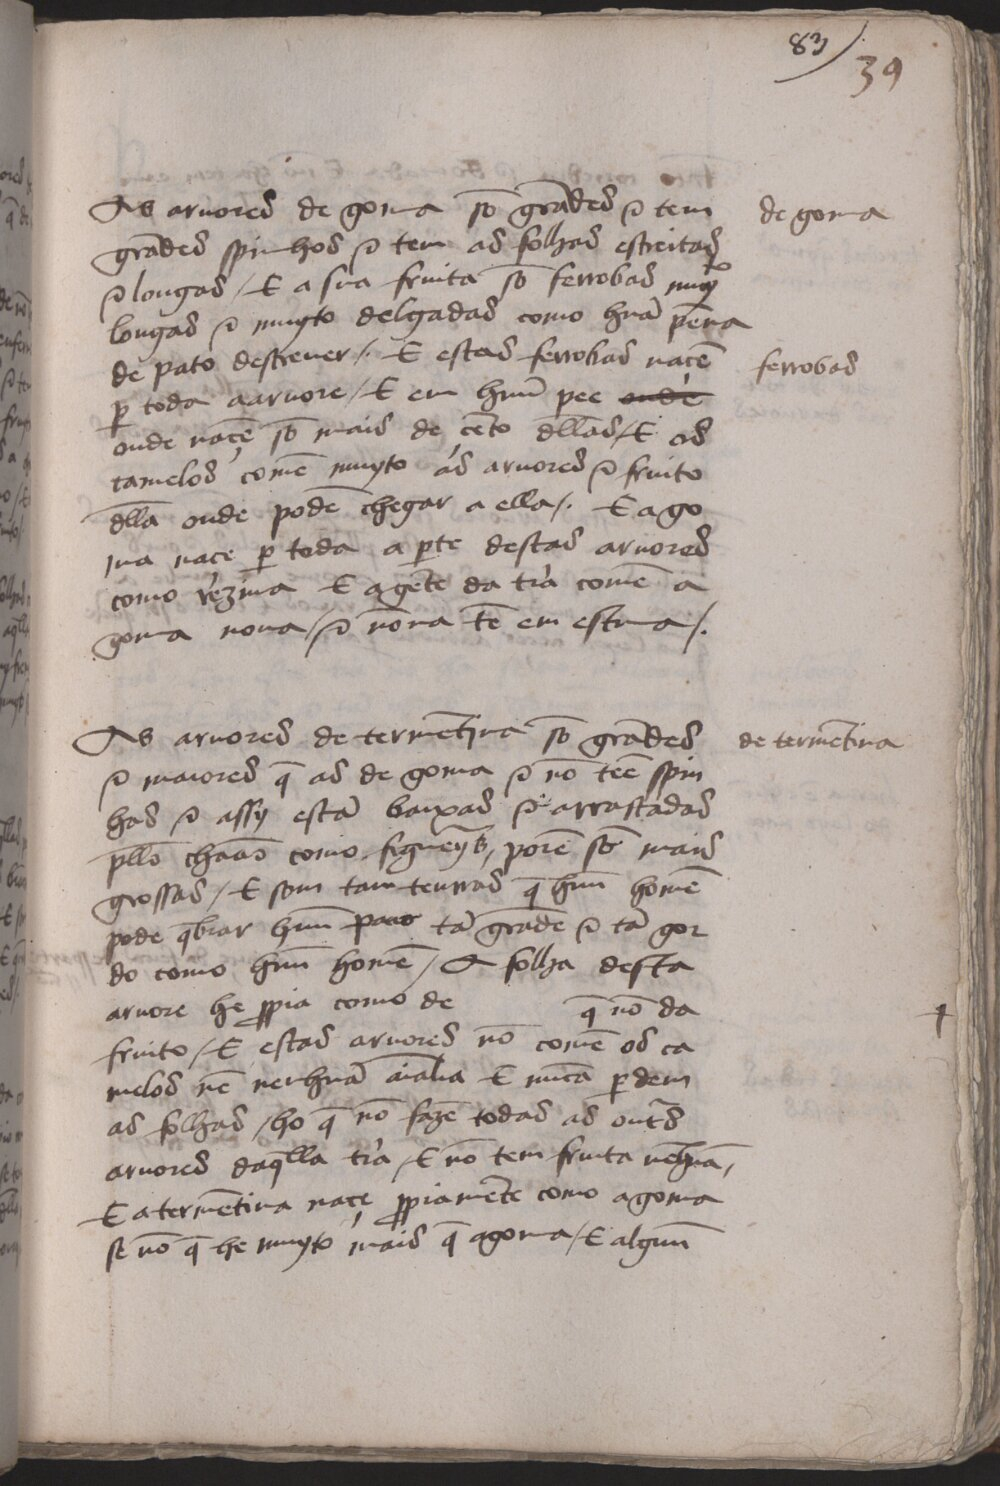 83
39
As aruores de goma sõ grãdes & tem
de goma
grãdes spinhos & tem as folhas estreitas
& longas / E a sua fruita sõ ferrobas muy
longas & muyto delgadas como hũa pena
de pato descreuer /. E estas ferrobas nacẽ
ferrobas
p toda a aruore / E em huũ pee onde
onde nacẽ sõ mais de cẽto dllas / E os
camelos comẽ muyto as aruores & fruito
dlla onde podẽ chegar a ella /. E a go
ma nace p toda a pte destas aruores
como rezina E a gẽte da trã comẽ a
goma noua / & nõna tẽ em estima /.
As aruores de termẽtina sõ grãdes
de termẽtina
& maiores q̃ as de goma & nõ teẽ spin
has & assy estã baixas & arrastadas
pllo chaão como figueyras, porẽ sõ mais
grossas / E som tam tenrras q̃ huũ homẽ
pode q̃brar huũ paao tã grãde & tã gor
do como huũ homẽ / A folha desta
aruore he ppia como de q̃ nõ da
fruito / E estas aruores nõ comẽ os ca
melos nẽ nenhũa aĩalia E nũca perdem
as folhas / ho q̃ nõ fazẽ todas as outras
aruores daq̃lla trã / E nõ tem fruita nehũa,
E a termẽtina nace ppiamẽte como a goma
se nõ q̃ he muyto mais q̃ a goma / E alguũ